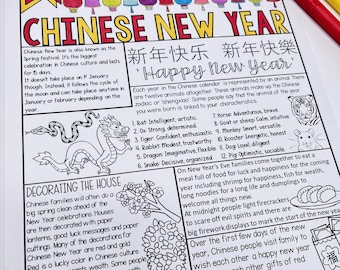 CHINESE NEW YEAR
Chinese New Year is also known as the
Spring festival. It's the biggest
celebration in Chinese culture and lasts
for 15 days.
It doesn't take place on 1st January
though. Instead, it follows the cycle of
the moon and can take place anytime in
January or February depending on the
year.
新年快乐 新年快樂
'Happy New Year'
Each year in the Chinese calendar is represented by an animal. There
are twelve animals altogether. These animals make up the Chinese
zodiac or 'shengxiao'. Some people say that the animal of the year
you were born is linked to your characteristics:
1. Rat: Intelligent, artistic.
2. Ox: Strong, determined.
3. Tiger: Confident, enthusiastic
4. Rabbit: Modest, trustworthy
5. Dragon: Imaginative, flexible
6. Snake: Decisive, organized.
7. Horse: Adventurous, brave.
8. Goat or sheep: Calm, intuitive
9. Monkey: Smart, versatile.
10. Rooster: Energetic, honest
11. Dog: Loyal, diligent
12. Pig: Optimistic, sociable
DECORATING THE HOUSE
Chinese families will often do a
big spring clean ahead of the
New Year celebrations. Houses
are then decorated with paper
lanterns, good luck messages and paper
cuttings. Many of the decorations for
Chinese New Year are red and gold.
Red is a lucky color in Chinese culture
On New Year's Eve, families come together to eat a
meal full of food for luck and happiness for the coming
year including shrimp for happiness, fish for wealth,
long noodles for a long life and dumplings
to welcome all things new.
At midnight people light firecrackers
to scare off evil spirits and there are
big firework displays to mark the start of the new year
Over the first few days of the new
year, Chinese people visit family to
wish each other a happy new year
福